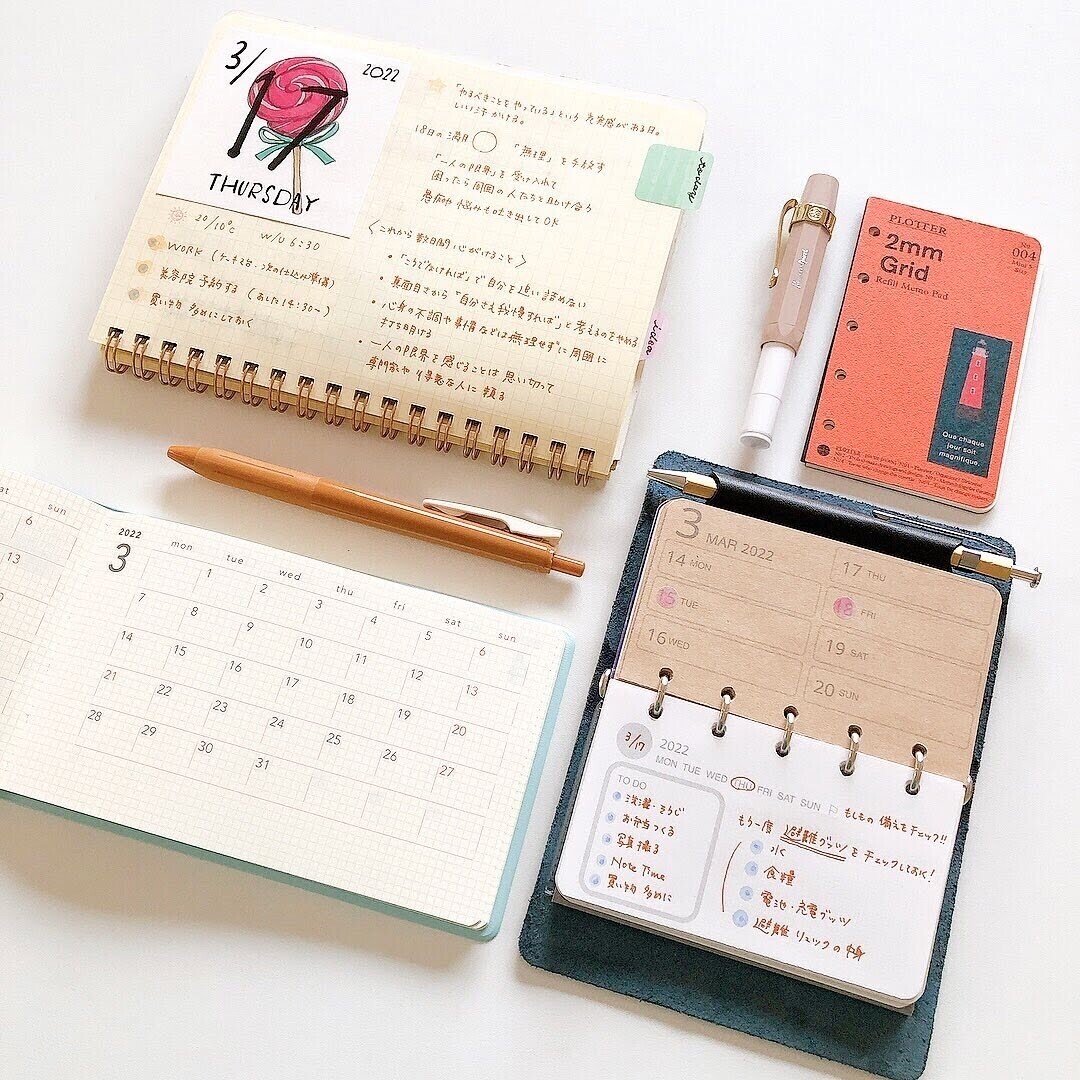 3/17
2022
THURSDAY
20/10℃ W/U 6:30
WORK (ケーキ2台、次の仕込み準備)
美容院 予約する (あした14:30〜)
買い物 多めにしておく
「やるべきことをやっている」という 充実感がある日。
いい汗 かける。
18日の満月
「無理」を手放す
「一人の限界」を受け入れて
困ったら周囲の人たちと助け合う
愚痴や悩みも吐き出してOK
〈これから数日間 心がけること〉
・「こうでなければ」で自分を追い詰めない
・真面目さから「自分さえ我慢すれば」と考えるのをやめる
・心身の不調や事情などは無理せずに周囲に
打ち明ける
・一人の限界を感じることは 思い切って
専門家や得意な人に頼る
diary
idea
PLOTTER
2mm
Grid
Refill Memo Pad
No.
004
Mini 5
Size
Que chaque
jour soit
magnifique.
PLOTTER
sat sun
6
13
20
2022
3
mon tue wed thu fri sat sun
1 2 3 4 5 6
7 8 9 10 11 12 13
14 15 16 17 18 19 20
21 22 23 24 25 26 27
28 29 30 31
3 MAR 2022
14 MON
15 TUE
16 WED
17 THU
18 FRI
19 SAT
20 SUN
3/17
2022
MON TUE WED THU FRI SAT SUN
TO DO
洗濯・そうじ
お弁当つくる
写真撮る
Note Time
買い物 多めに
もしもの 備えをチェック!!
もう一度 避難グッズをチェックしておく!
水
食糧
電池・充電グッズ
避難リュックの中身